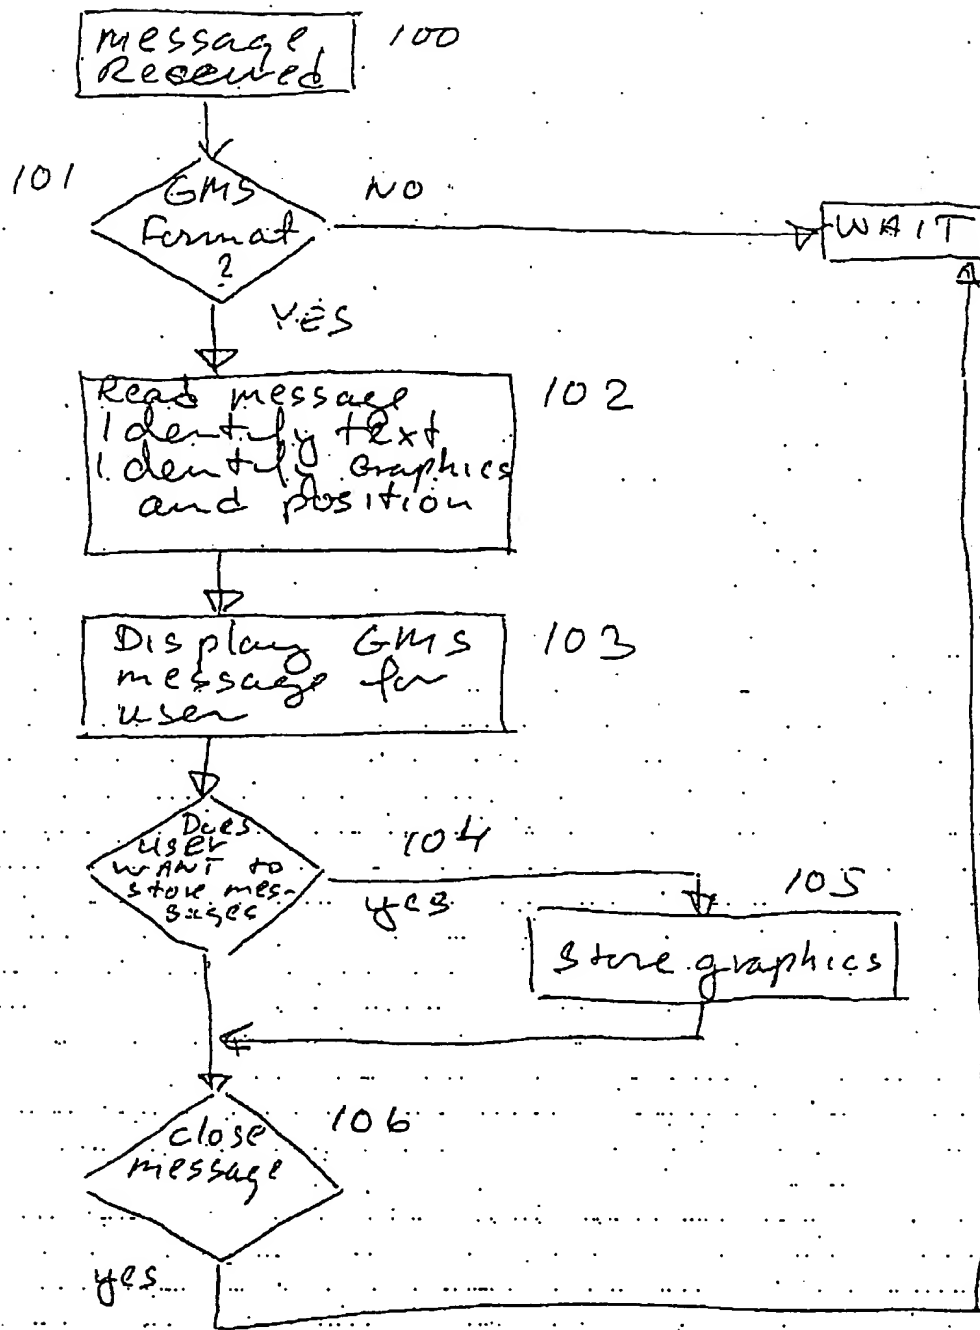 message 100
Received
101 GMS NO
Format
?
WAIT
YES
Read message 102
Identify text
Identify Graphics
and position
Display GMS 103
message for
user
Does
user 104
WANT to
store mes-
sages
yes
105
Store graphics
106
close
message
yes